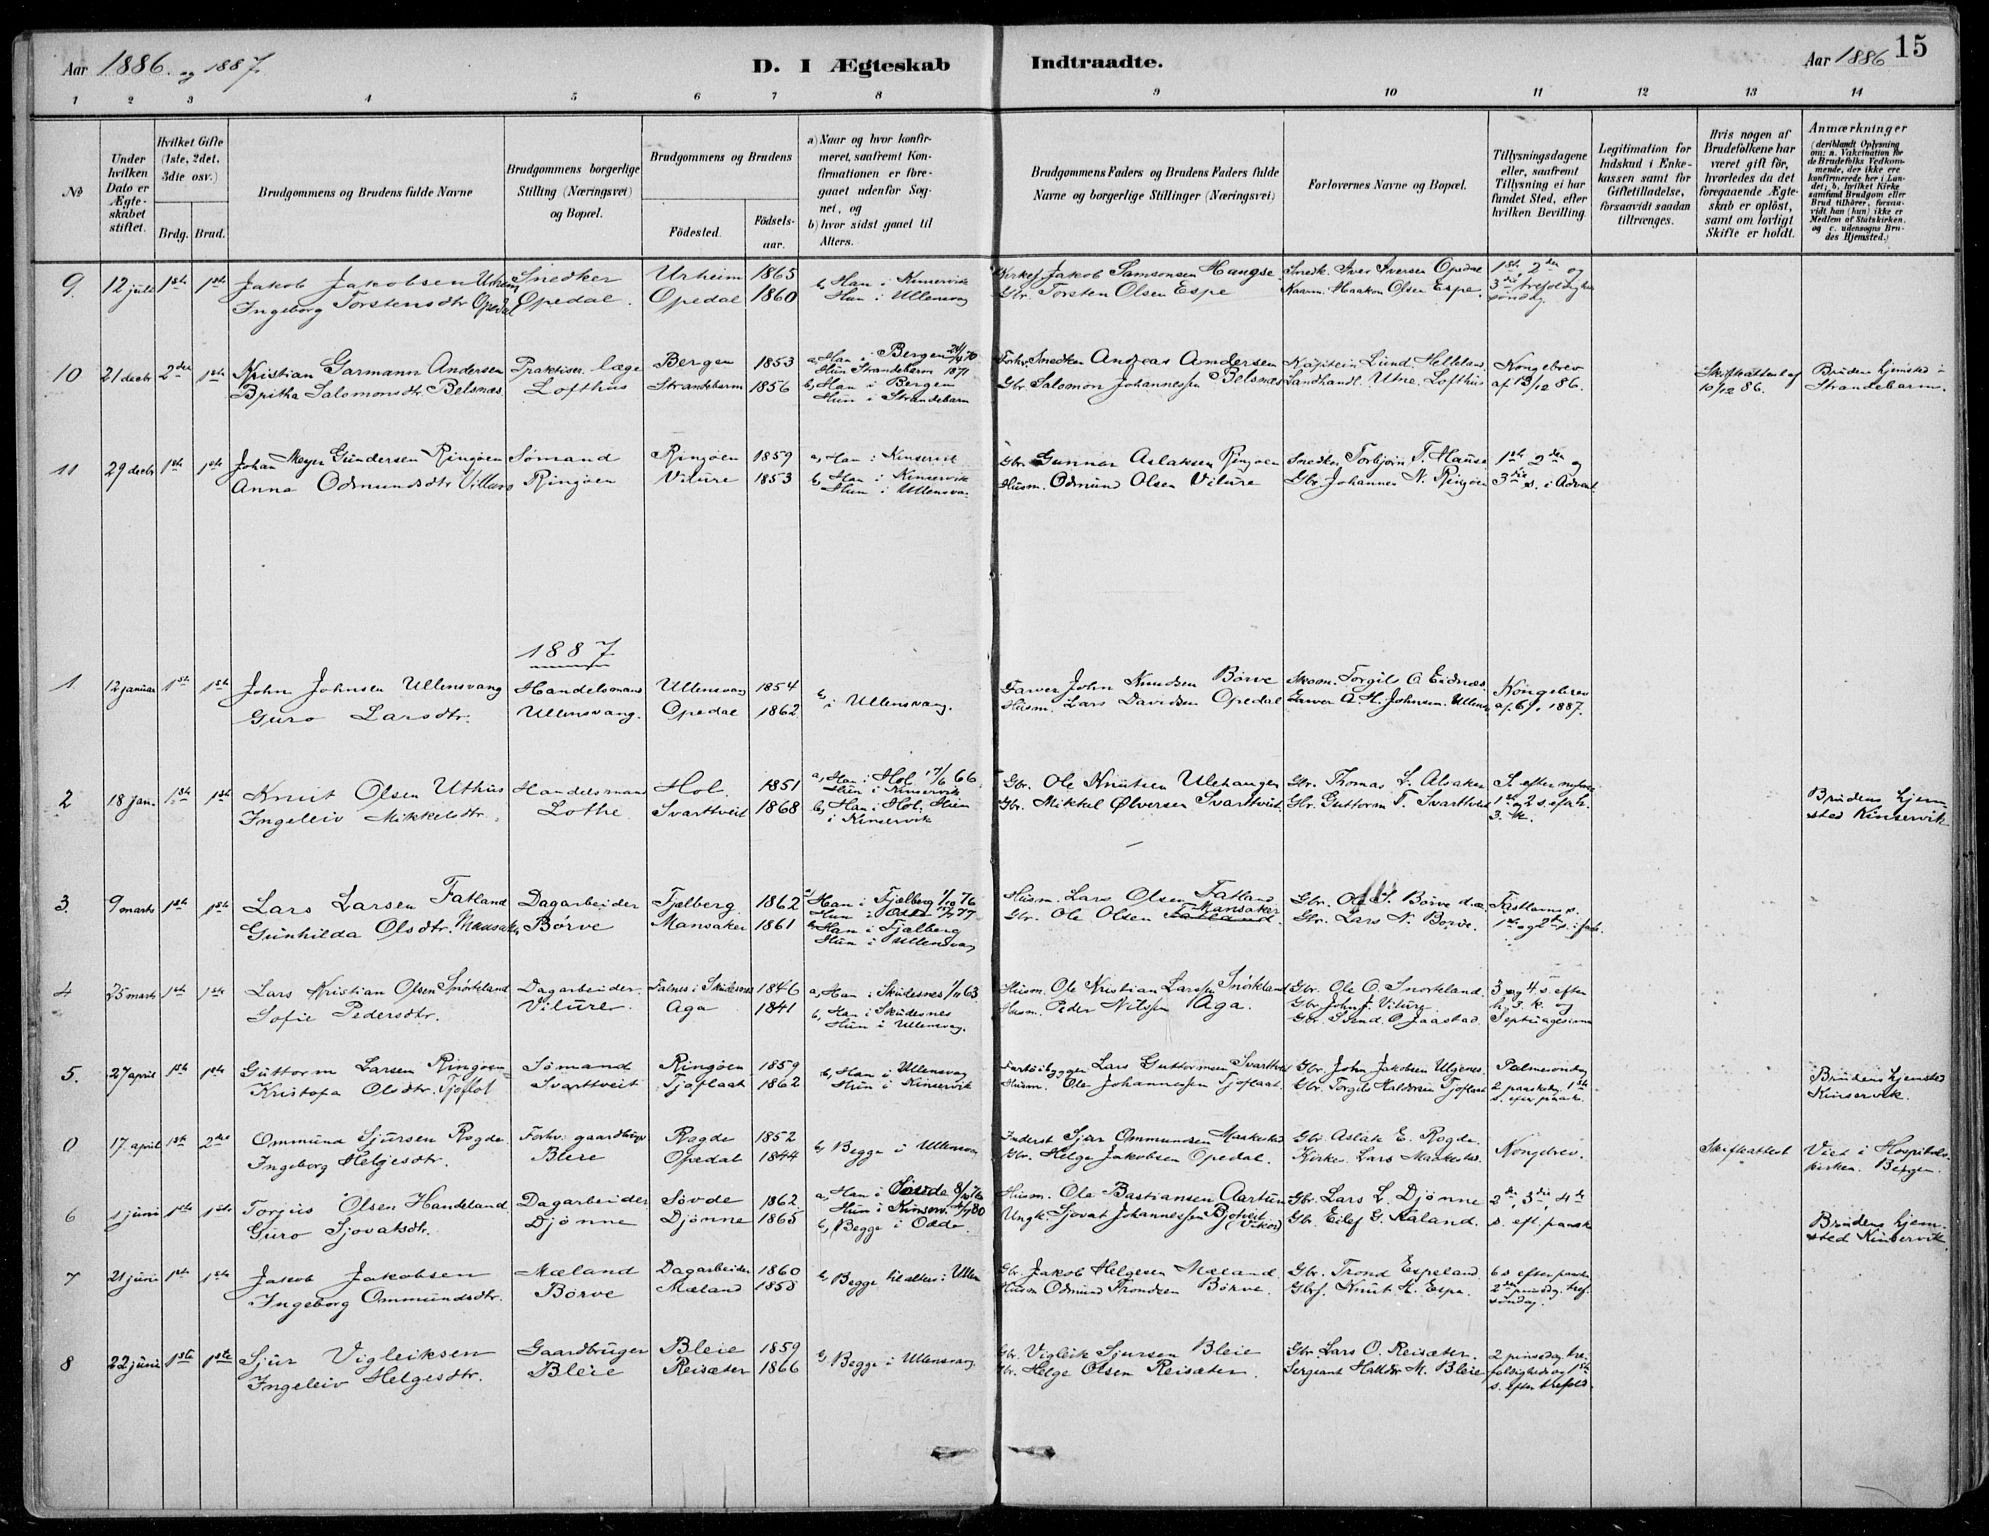 Aar 1886 og 1887
D. I Ægteskab Indtraadte.
Aar 1886 15
1 2 3 4 5 6 7 8 9 10 11 12 13 14
No
Under hvilken Dato er Ægteskabet stiftet.
Hvilket Gifte (1ste, 2det, 3die osv.)
Brdg. Brud.
Brudgommens og Brudens fulde Navne
Brudgommens borgerlige Stilling (Næringsvei) og Bopæl.
Brudgommens og Brudens
Fødested. Fødselsaar.
a) Naar og hvor konfirmeret, saafremt Konfirmationen er foregaaet udenfor Sognet, og
b) hvor sidst gaaet til Alters.
Brudgommens Faders og Brudens Faders fulde Navne og borgerlige Stillinger (Næringsvei)
Forlovernes Navne og Bopæl.
Tillysningsdagene eller, saafremt Tillysning ei har fundet Sted, efter hvilken Bevilling.
Legitimation for Indskud i Enkekassen samt for Giftetilladelse, forsaavidt saadan tiltrænges.
Hvis nogen af Brudefolkene har været gift før, hvorledes da det foregaaende Ægteskab er opløst, samt om lovligt Skifte er holdt.
Anmærkninger (deriblandt Oplysning om: a. Vakcination for de Brudefolks Vedkommende, der ikke ere konfirmerede her i Landet; b. hvilket Kirkesamfund Brudgom eller Brud tilhører, forsaavidt han (hun) ikke er Medlem af Statskirken. og c. udensogns Brudes Hjemsted.)
9. 12 juli 1ste 1ste Jakob Jakobsen Urheim Snedker Urheim 1865 b, Han i Kinservik Kirkes. Jakob Samsonsen Haugse Snedk. Iver Iversen Opedal 1ste 2den og
Ingeborg Torstensdtr Opedal Opedal. Opedal 1860 Hun i Ullensvang Gbr. Torsten Olsen Espe Kaarm. Haakon Olsen Espe. 3die trefoldighed søndag.
10 21 decbr 2den 1ste Kristian Garmann Andersen Praktiser. læge Bergen 1853 a, Han i Bergen Forhv. Snedker Andreas Andersen Kapitein Lund. Helleland Kongebrev Skifteattest af Brudens hjemsted i
Hun Strandebarm 1871
Britha Salomonsdtr Belsnæs Lofthus Strandebarm 1856 b, Han i Bergen Gbr. Salomon Johannessen Belsnæs Landhandl. Utne. Lofthus af 13/12 86. 10/12 86. Strandebarm.
Hun i Strandebarm
11 29 decbr 1ste 1ste Johan Meyer Gundersen Ringøen Sømand Ringøen 1859 a, Han i Kinservik Gbr. Gunnar Aslaksen Ringøen Snedker Torbjørn T. Hause 1ste 2den og
Anna Odmundsdtr Villure Ringøen Vilure 1853 b, Han i Kinservik Husm. Odmund Olsen Vilure Gbr. Johannes N. Ringøen 3die s. i Advent
Hun i Ullensvang
1887
1 12 januar 1ste 1ste John Johnsen Ullensvang Handelsmand Ullensvang 1854 b, i Ullensvang. Garver John Knudsen Børve Skom. Torgils O. Eidnæs Kongebrev
Guro Larsdtr. Ullensvang. Opedal 1862 Husm. Lars Davidsen Opedal Garver A. H. Johnsen. Ullensv. af 6/1 1887.
2 18 jan. 1ste 1ste Knut Olsen Uthus Handelsmand Hol 1851 a, Han i Hol 17/6 66 Gbr. Ole Knutsen Ulehaugen Gbr. Thomas L. Alsaker S. efter nytaar
Hun i Kinservik
Ingeleiv Mikkelsdtr. Lothe Svarttveit 1868 b, Han i Hol. Hun i Kinservik Gbr. Mikkel Ølversen Svarttveit. Gbr. Guttorm T. Svarttveit 1ste og 2 s. efter h. 3 k.
Brudens hjemsted Kinservik
3. 9 marts 1ste 1ste Lars Larsen Fatland Dagarbeider Fjelberg 1862 a, Han i Fjelberg 1/10 76 Husm. Lars Olsen Fatland Gbr. Ole S. Børve Fastelavns s.
Gunhilda Olsdtr. Mansaker Børve Mansaker 1861 b, Han i Fjelberg Gbr. Ole Olsen Mansaker Gbr. Lars N. Børve. 1ste og 2den s. i faste
Hun i Ullensvang
4 25 marts 1ste 1ste Lars Kristian Olsen Snørteland Dagarbeider. Falnes i Skudesnes 1846 a, Han i Skudesnes 1/11 63 Husm. Ole Kristian Larssen Snørteland Gbr. Ole O. Snørteland. 3 og 4. s. efter
Sofie Pedersdtr. Vilure. Aga 1841 b, Han i Skudesnes Husm. Peder Nilssen Aga. Gbr. John J. Vilure. h. 3. k. og
Hun i Ullensvang. Gbr. Svend O. Jaastad. Septuagesima
5. 27 april 1ste 1ste Guttorm Larsen Ringøen Sømand Ringøen 1859 b, Han i Ullensvang Fartøibygger Lars Guttormsen Svarttveit Gbr. John Jakobsen Ulgenes. Palmesøndag
Kristofa Olsdtr. Tjoflot Svarttveit Tjoflaat 1862 Hun i Kinservik Husm. Ole Johannessen Tjoflaat. Gbr. Torgils Haldorsen Tjoflaat 2 paaskedag 1ste s. efter paaske.
Brudens hjemsted Kinservik.
0 17 april 1ste 2den Ommund Sjursen Rogde Forhv. gaardbruger Rogde 1852 b, Begge i Ullensvang Inderst Sjur Ommundsen Maakestad Gbr. Aslak E. Rogde. Kongebrev. Skifteattest Viet i Hospitalskirken. Bergen.
Ingeborg Helgesdtr. Bleie Opedal 1844 Gbr. Helge Jakobsen Opedal. Kirkes. Lars Maakestad.
6 1 juni 1ste 1ste Torjus Olsen Handeland Dagarbeider Søvde 1862 a, Han i Søvde 8/10 76 Husm. Ole Bastiansen Aartun Gbr. Lars L. Djønne 2den, 3die, 4de
Hun i Kinserv. 80
Guro Sjovatsdtr. Djønne Djønne 1865 b, Begge i Odda. Ungk. Sjovat Johannessen Bjotveit (Vikør) Gbr. Eilef G. Naland. s. eft. paaske
Brudens hjemsted Kinservik.
7 21 juni 1ste 1ste Jakob Jakobsen Mæland Dagarbeider 1860 b, Begge til alters i Ullen Gbr. Jakob Helgesen Mæland Gbr. Trond Espeland 6 s. efter paaske
Ingeborg Ommundsdtr. Børve Mæland 1858 Husm. Odmund Trondsen Børve. Gbrf. Knut H. Espe. 2den pinsedag. tref. søndag.
8 22 juni 1ste 1ste Sjur Vigleiksen Gaardbruger Bleie 1859 b, Begge i Ullensvang Gbr. Vigleik Sjursen Bleie Gbr. Lars O. Reisæter. 2 pinsedag tre-
Ingeleiv Helgesdtr. Bleie Reisæter 1866 Gbr. Helge Olsen Reisæter. Sergeant Haldor M. Bleie foldighed og 1ste s. efter trefold.